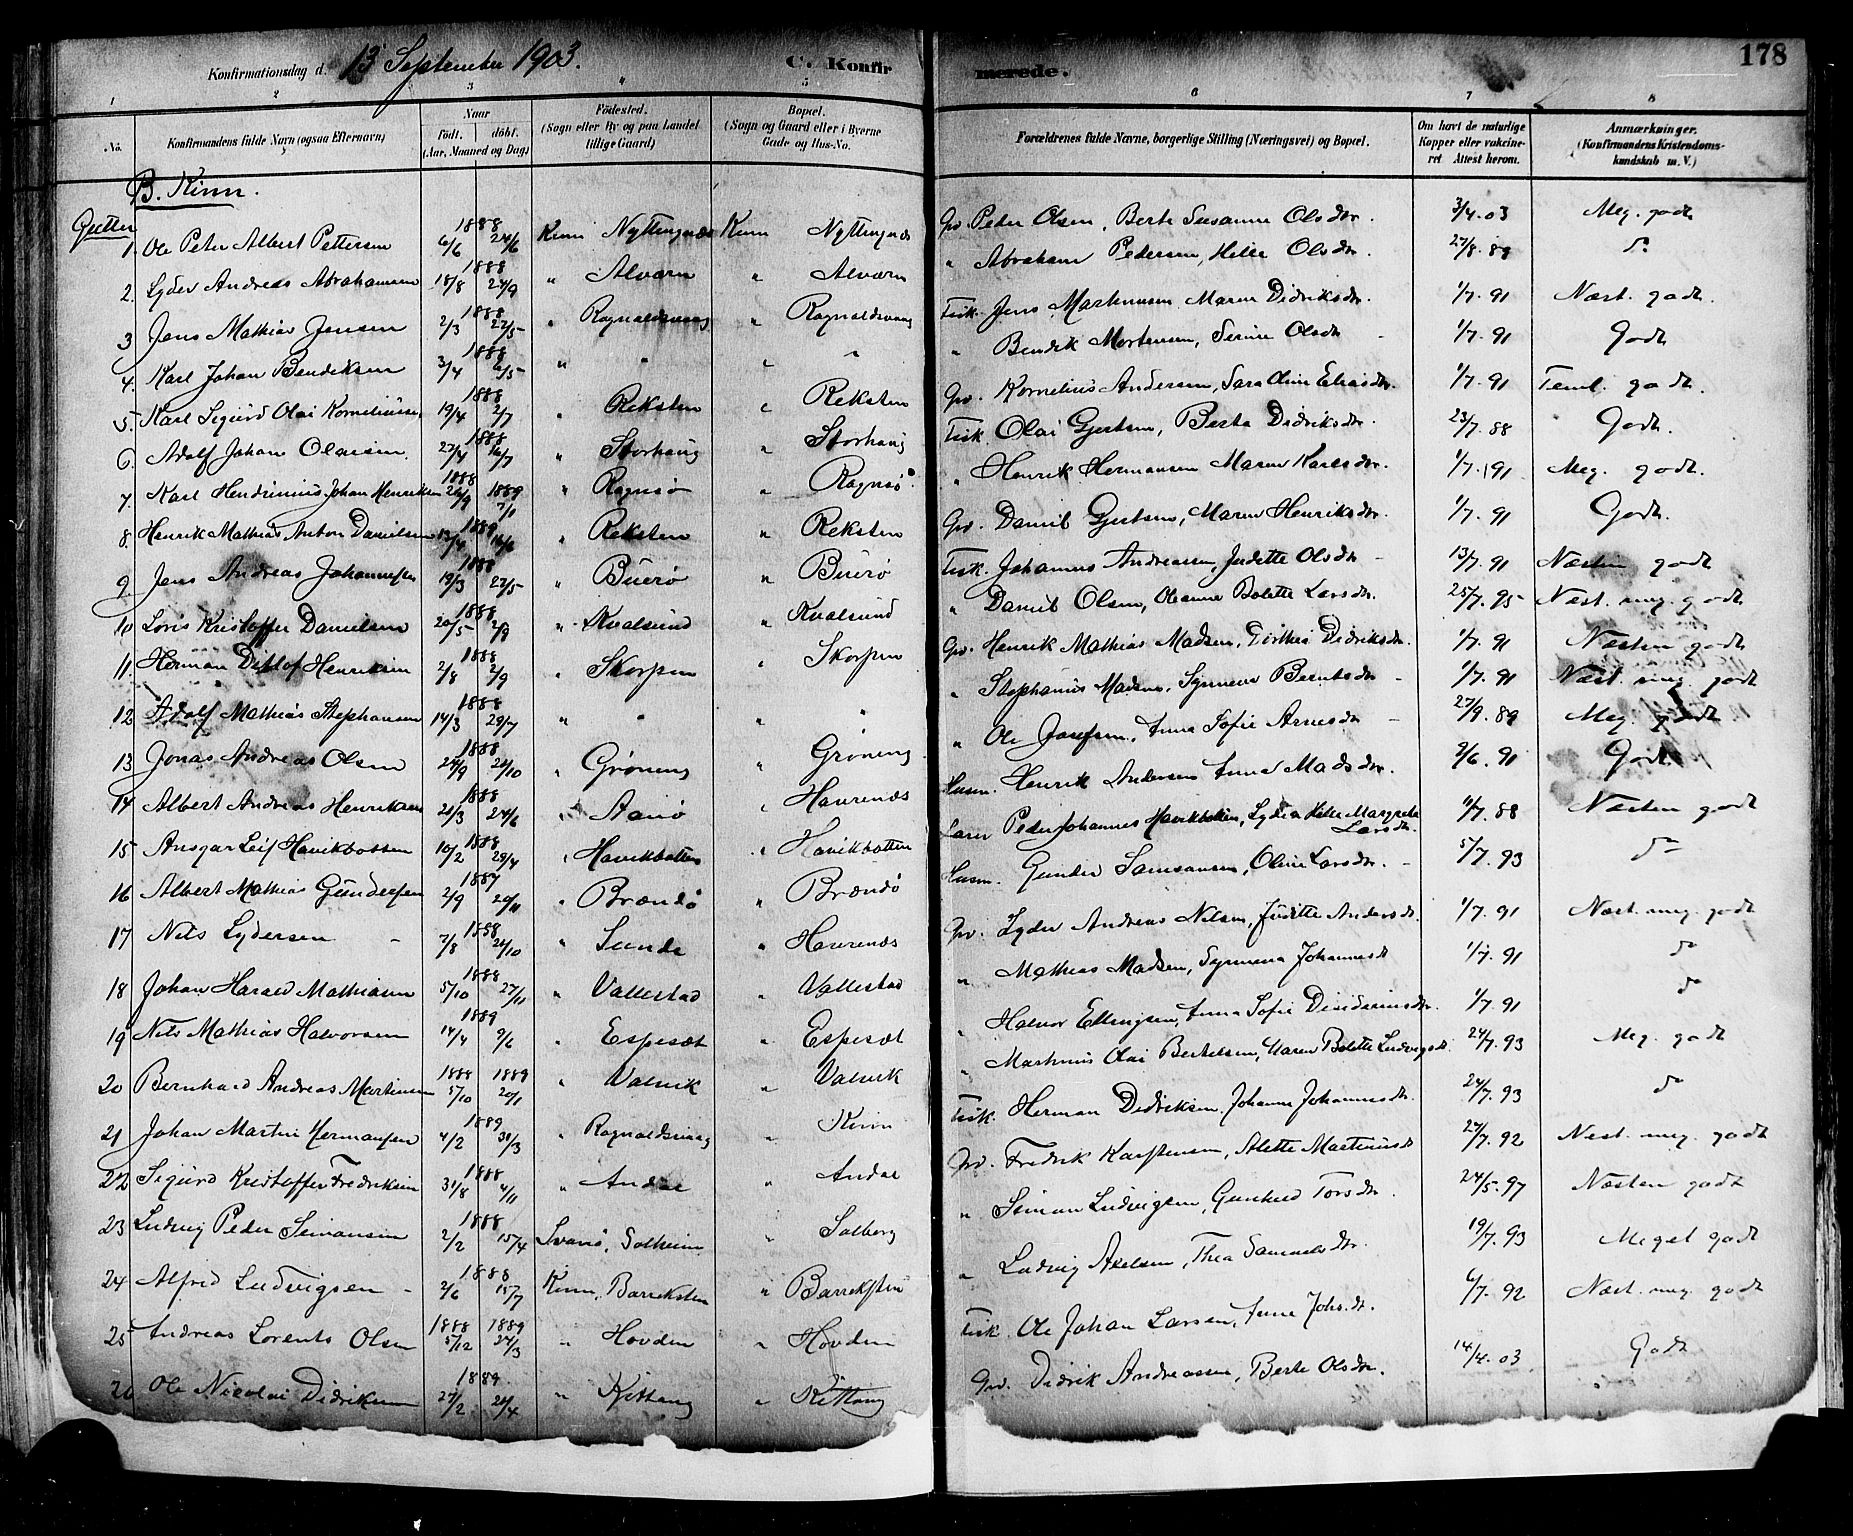 Konfirmationsdag d. 13 September 1903. C. Konfirmerede. 178
1 2 3 4 5 6 7 8
No. Konfirmandens fulde Navn (ogsaa Efternavn) Naar født. døbt. (Aar, Maaned og Dag) Fødested. (Sogn eller By og paa Landet tillige Gaard) Bopæl. (Sogn og Gaard eller i Byerne Gade og Hus-No. Forældrenes fulde Navne, borgerlige Stilling (Næringsvei) og Bopæl. Om havt de naturlige Kopper eller vaccineret Attest herom. Anmærkninger. (Konfirmandens Kristendomskundskab m. V.)
B. Kinn.
Gutter
1. Ole Peter Albert Pettersen 1888 6/6 24/6 Kinn Nyttingnæs Kinn Nyttingnæs Gv. Peder Olsen, Berte Susanne Olsdtr. 3/4.03 Meg. godt
2. Lyder Andreas Abrahamsen 1888 18/8 24/9 " Alværn " Alværn " Abraham Pedersen, Helle Olsdtr. 27/8.89 do
3 Jens Mathias Jensen 1888 2/3 22/5 " Rognaldsvaag " Rognaldsvaag Fisk. Jens Martinusen Maren Didriksdtr. 1/7.91 Næst. godt.
4. Karl Johan Bendiksen 1888 3/4 6/5 " " " " " Bendik Mortensen, Serine Olsdtr - 1/7.91 Godt
5. Karl Sigurd Olai Korneliusse. 1888 19/4 2/7 " Reksten " Reksten Gv. Kornelius Andersen, Sara Oline Eliasdtr. 1/7.91 Teml. godt.
6. Adolf Johan Olaisen. 1888 27/4 16/7 " Storhaug " Storhaug Fisk. Olai Gjertsen, Berta Didriksdtr. 23/7.88 Godt.
7. Karl Hendrinius Johan Henriksen 1888 26/9 1889 7/1 " Rognsø " Rognsø " Henrik Hermansen Maren Karlsdtr. 1/7.91 Meg. godt.
8. Henrik Mathias Anton Danielsen 1889 13/4 16/6 " Reksten " Reksten Gv. Daniel Gjertsen, Maren Henriksdtr. 1/7.91 Godt.
9. Jens Andreas Johannesen 1888 19/3 22/5 " Buerø " Buerø Fisk. Johannes Andreassen, Judette Olsdtr - 13/7.91 Næsten godt
10 Loris Kristoffer Danielsen 1888 20/5 2/9 " Kvalsund " Kvalsund " Daniel Olsen, Oleanna Bolette Larsdtr. 25/7.95 Næst. meg. godt
11. Herman Ditlof Henriksen 1888 2/8 2/9 " Skorpen " Skorpen Gv. Henrik Mathias Madsen, Dorthea Didriksdtr. 1/7.91 Næsten godt
12. Adolf Mathias Stephansen 1888 14/3 29/7 " " " " " Stephanus Madsen, Synneve Berntsdtr - 1/7.91 Næst. meg. godt
13 Jonas Andreas Olsen 1888 24/9 24/10 " Grøning " Grøning " Ole Josefsen, Anna Sofie Arnesdtr - 27/9.89 Meg. godt
14 Albert Andreas Henriksen 1888 21/3 24/6 " Aarø " Haurenæs Husm. Henrik Andersen Anna Madsdtr. 2/6.91 Godt.
15 Ansgar Leif Havikbotten 1888 10/2 29/4 " Havikbotten " Havikbotten Lærer Peder Johannes Havikbotten, Lydia Helle Margrete Larsdtr 11/7.88 Næsten godt
16 Albert Mathias Gundersen 1887 2/9 20/11 " Brændø " Brændø Husm. Gunder Samsonsen, Oline Larsdtr. - 5/7.93 do
17 Nils Lydersen - 1888 7/8 24/10 " Sunde " Haurenæs Gv. Lyder Andreas Nilsen, Juditte Andersdt. 1/7.91 Næst. meg. godt
18 Johan Harald Mathiasen 1888 5/10 27/11 " Vallestad " Vallestad " Mathias Madsen, Synneva Johannesdt 1/7.91 do
19 Nils Mathias Halvorsen 1889 14/4 9/6 " Espesæt " Espesæt " Halvor Ellingsen, Anna Sofie Desideriusdtr. 1/7.91 do
20 Bernhard Andreas Martinusen 1888 5/10 1889 20/1 " Valvik " Valvik " Martinus Olai Bertelsen, Maren Bolette Ludvigsdt. 24/7.93 Meg. godt
21 Johan Martin Hermansen 1889 4/2 31/3 " Rognaldsvaag " Kinn Fisk. Herman Didriksen, Johanne Johannesdtr. 24/7.93 do
22 Sigurd Kristoffer Fredriksen 1888 31/8 4/11 " Andal " Andal Gv. Fredrik Karstensen, Alette Martinusdt 27/7.92 Næst. meg. godt
23 Ludvig Peder Simonsen 1888 2/2 15/4 Svanø, Solheim " Solberg " Simon Ludvigsen, Gunhild Torsdtr. 24/5.97 Næsten godt
24 Alfred Ludvigsen - 1888 2/6 15/7 Kinn, Barreksten " Barreksten " Ludvig Axelsen, Thea Samuelsdtr. 19/7.93 Meget godt
25 Andreas Lorents Olsen 1888 5/12 1889 24/3 " Hovden " Hovden Fisk. Ole Johan Larsen, Anne Johs.dt. 6/7.92 Næst. meg. godt
26 Ole Nicolai Didriksen 1889. 27/2 21/4 " Kittang " Kittang Gv. Didrik Andreassen, Berte Olsdtr. 14/4.03 Godt